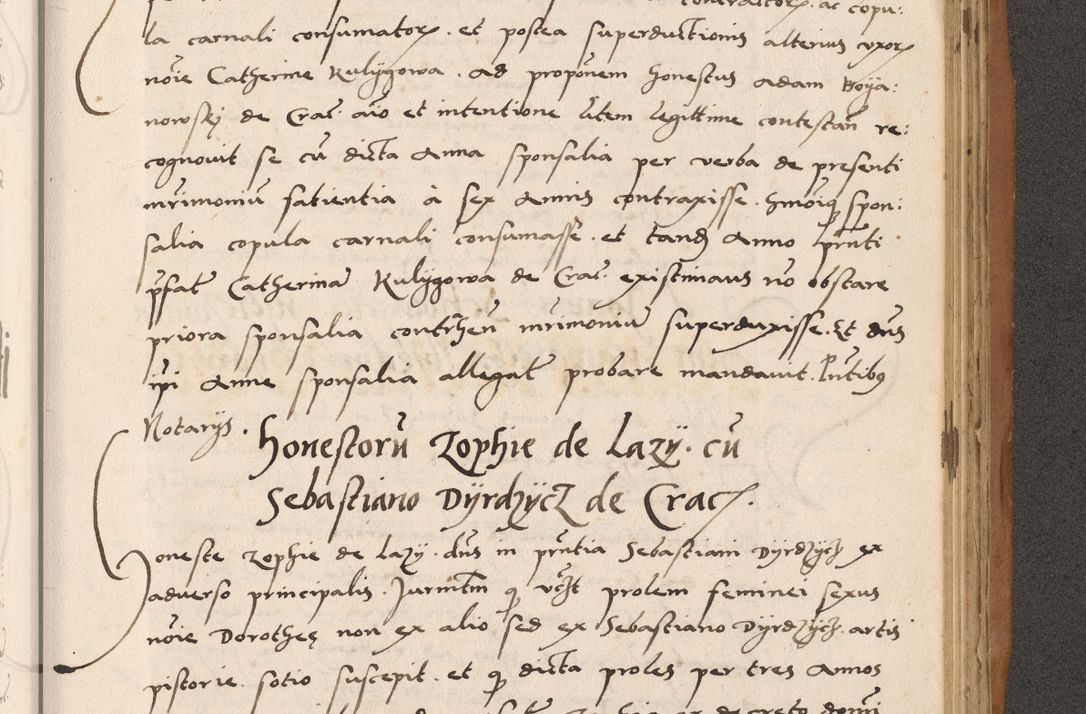 contractorꝝ. ac copu:
la carnali consumatorꝝ. et postea superductionis alterius vxorꝝ
noīe Catherine Kulygowa. Ad proponem honestus Adam Boÿa:
nowskj de Crac. aīo et intentione litem legittime contestan̄ re:
cognouit se cū dicta Anna sponsalia per verba de presenti
mr̄imoniū satientia à sex Annis contraxisse. hmōiqꝫ spon:
salia copula carnali consumasse. et tandꝫ Anno pn̄ti
p̄fat Catherinā Kulygowa de Crac. existimans nō obstare
priora sponsalia contrhēn mr̄imoniū superduxisse. Et dn̄s
ip̄i Anne sponsalia allegat probare mandauit. Pn̄tibꝫ
Notarijs.
Honestorū Zophie de Lazÿ. cū
Sebastiano Dÿrdzÿcz de Crac.
Honeste Zophie de Lazÿ. dn̄s in pn̄tia Sebastiani Dÿrdzÿcz ex
aduerso principalis. Jurm̄tm qꝫ prolem feminei sexus
noīe Dorotheę non ex alio sed ex Sebastiano Dÿrdzÿcz. artis
pistorie. sotio suscepit. et qꝫ dicta proles per tres Annos
ex decreto domī